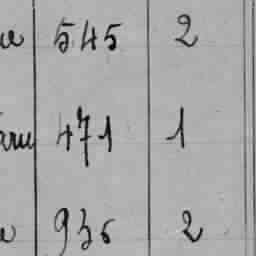 545 2
471 1
936 2